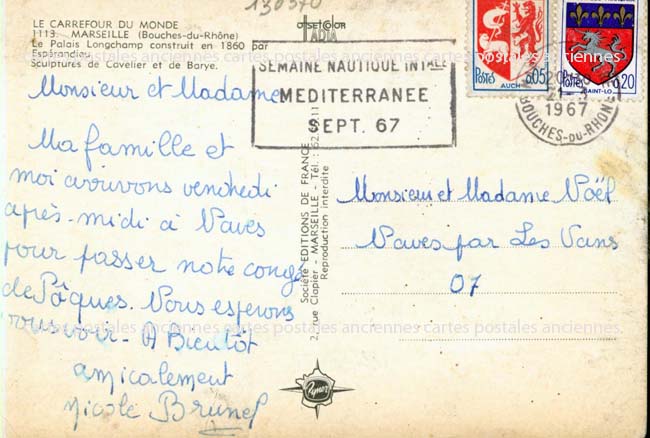 130370
LE CARREFOUR DU MONDE
1113. MARSEILLE (Bouches-du-Rhône)
Le Palais Longchamp construit en 1860 par
Espérandieu
Sculptures de Cavelier et de Barye.
offsetcolor
IADIA
SEMAINE NAUTIQUE INTALE
MEDITERRANEE
SEPT. 67
POSTES
0,05
AUCH
POSTES
0,20
SAINT-LO
1967
BOUCHES-DU-RHÔNE
Monsieur et Madame
Ma famille et
moi arrivons vendredi
après-midi à Naves
pour passer notre congé
de Pâques. Nous esperons
vous voir - A Bientôt
amicalement
Nicole Brunel
Société EDITIONS DE FRANCE
rue Clapier - MARSEILLE - Tél. :
Reproduction interdite
Monsieur et Madame Noël
Naves par Les Vans
07
cartes postales anciennes cartes postales anciennes cartes postales anciennes
Rymer